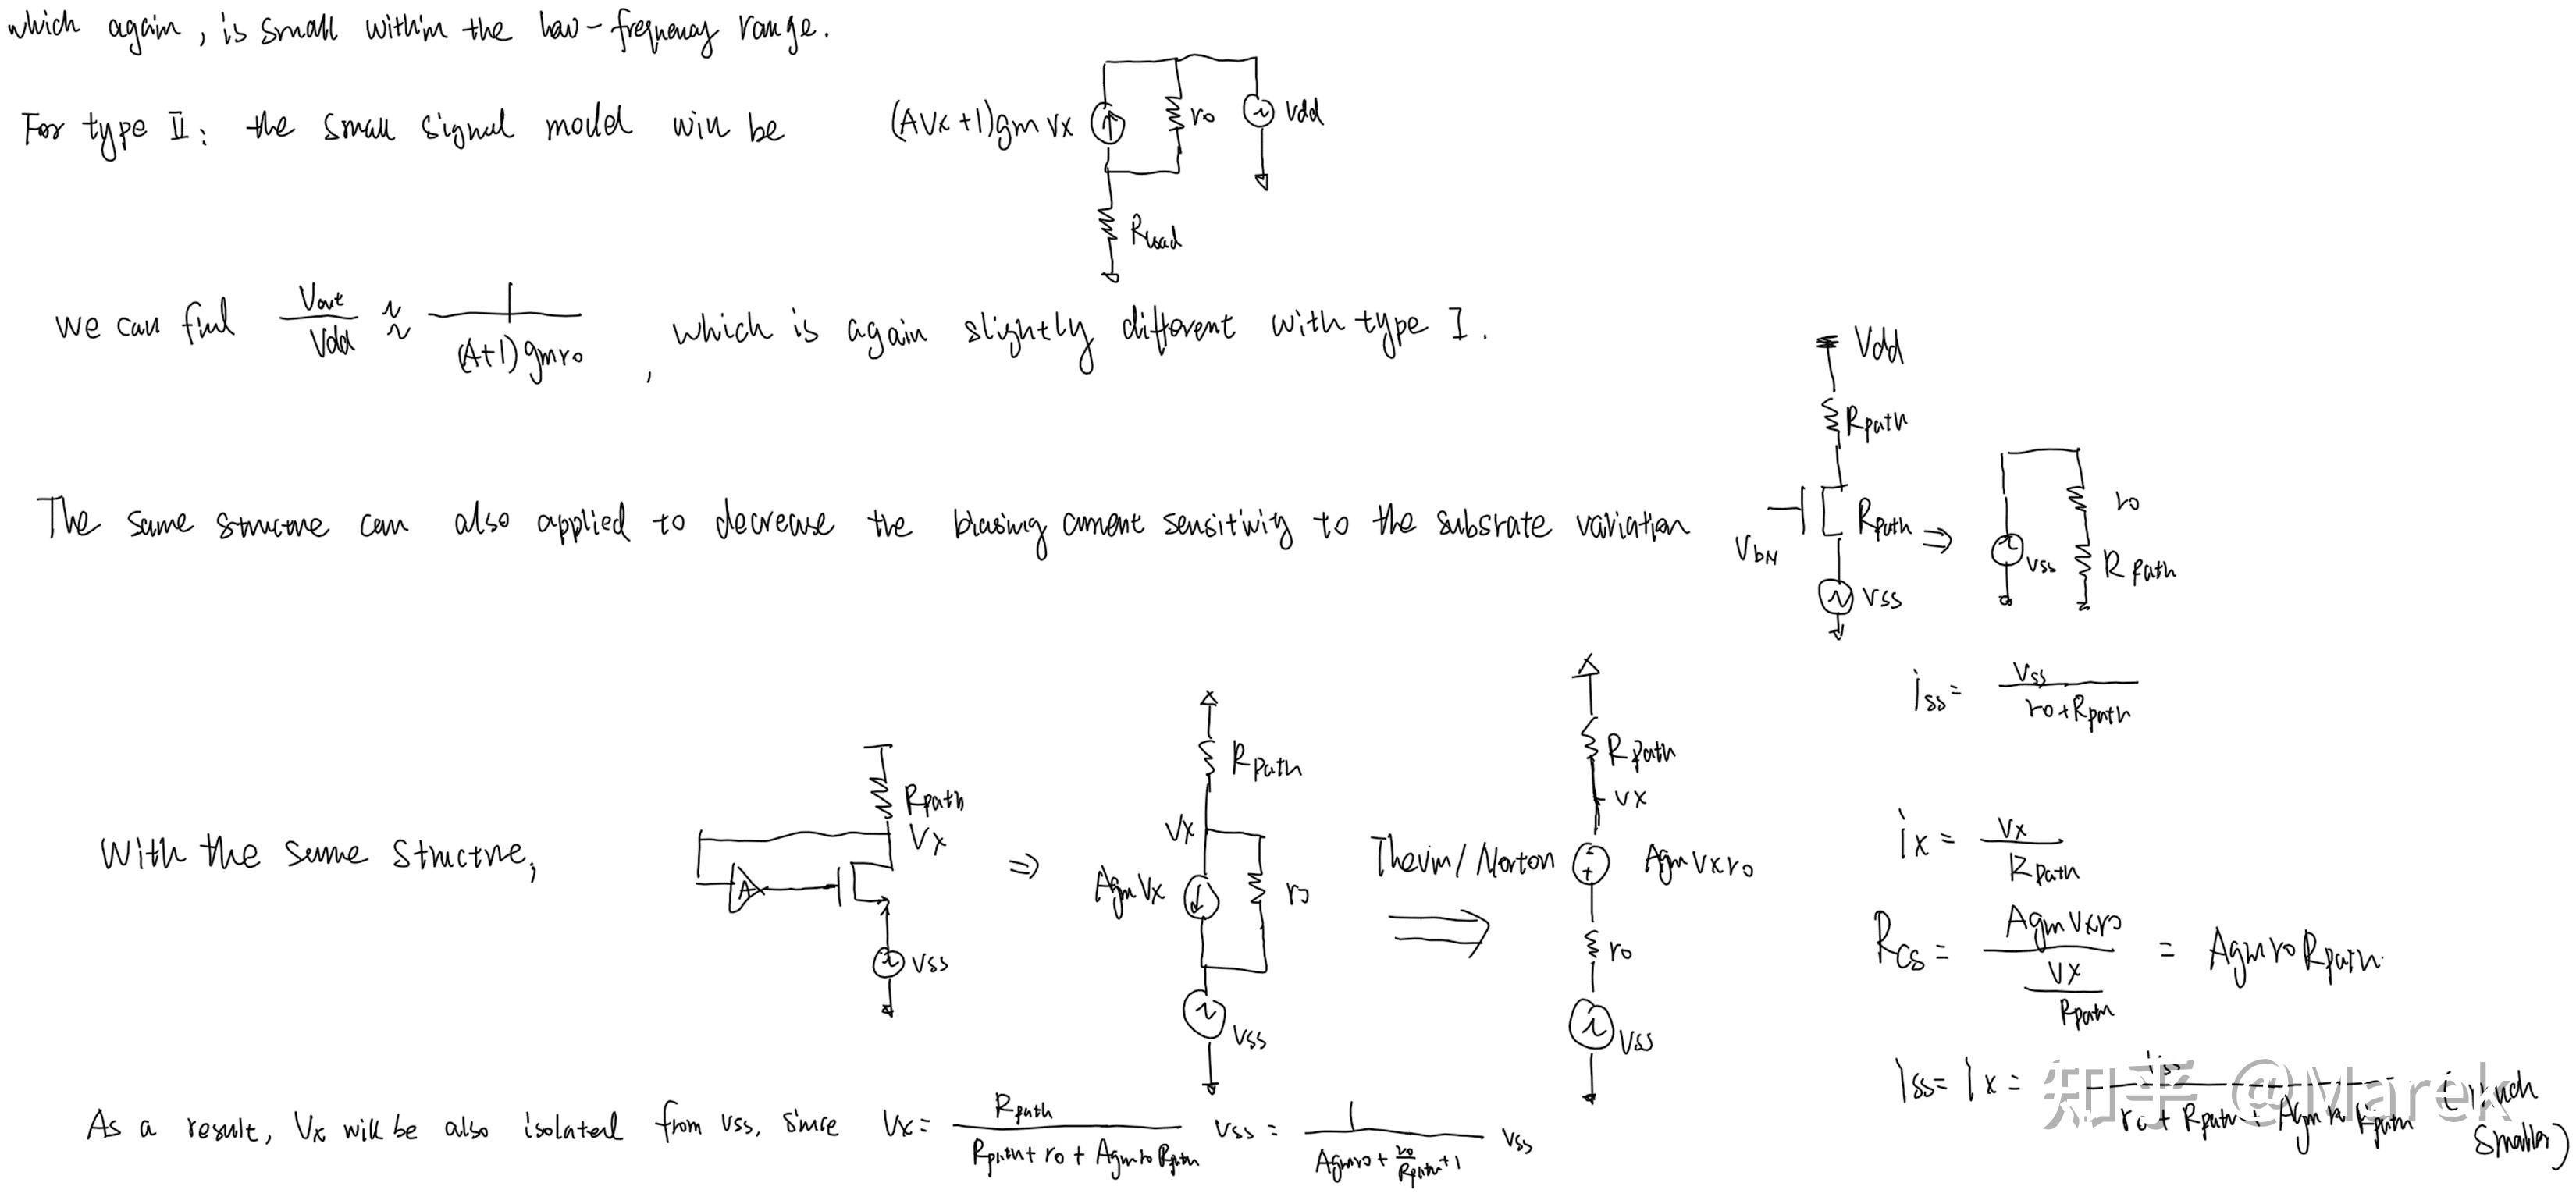 which again, is small within the low-frequency range.
For type II: the small signal model will be
(AVx+1)gm vx
ro
Vdd
Rload
we can find Vout/Vdd ≈ 1/((A+1)gmro), which is again slightly different with type I.
Vdd
Rpath
The same structure can also applied to decrease the biasing current sensitivity to the subsrate variation
VbN
Rpath
⇒
vss
ro
Rpath
vss
iss = Vss/(ro+Rpath)
With the same structure,
Rpath
Vx
A
vss
⇒
Rpath
Vx
AgmVx
ro
vss
Thevin/Norton
Rpath
vx
Agmvxro
ro
vss
ix = Vx/Rpath
Rcs = Agmvxro/(Vx/Rpath) = AgmroRpath
As a result, Vx will be also isolated from vss, since Vx = Rpath/(Rpath+ro+AgmroRpath) vss = 1/(Agmro+ro/Rpath+1) vss
iss = ix = /(ro+Rpath+AgmroRpath) (much smaller)
知乎 @Marek